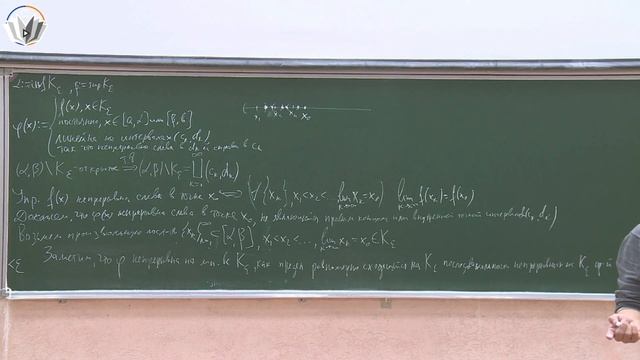 α:=inf K_ε, β=sup K_ε
φ(x):= { f(x), x∈K_ε
постоянно, x∈[a,α] или [β,b]
линейна на интервалах (c_k, d_k)
так что непрерывна слева в d_k и справа в c_k
(α,β)\K_ε - открыто ⟹ (α,β)\K_ε = ∐_{k=1}^∞ (c_k, d_k)
x_1 x_2 x_0
Упр. f(x) непрерывна слева в точке x_0 ⟺ (∀{x_k}, x_1<x_2<... lim_{k→∞} x_k = x_0) lim_{k→∞} f(x_k) = f(x_0)
Докажем, что φ(x) непрерывна слева в точке x_0, не являющейся правым концом или внутренней точкой интервалов (c_k, d_k)
Возьмем произвольную посл-ть {x_k}_{k=1}^∞ ⊆ [α,β], x_1<x_2<..., lim_{k→∞} x_k = x_0 ∈ K_ε
Заметим, что φ непрерывна на мн-ве K_ε, как предел равномерно сходящейся на K_ε последовательности непрерывных на K_ε ф-й
<ε